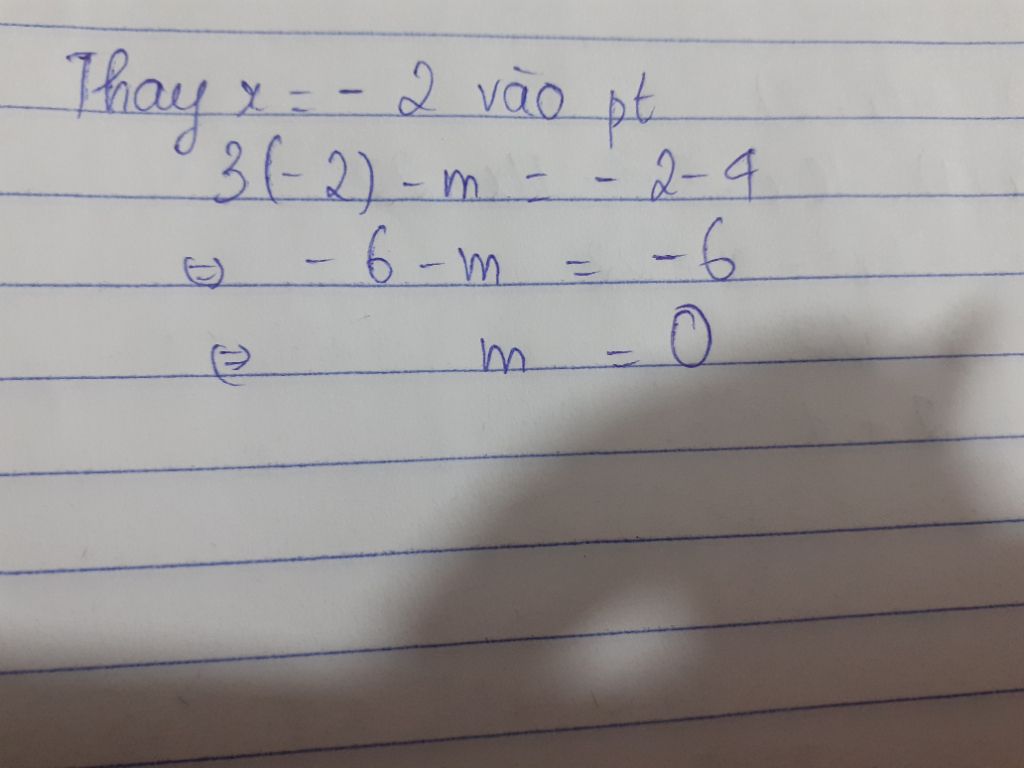 Thay x = - 2 vào pt
3(-2) - m = - 2 - 4
⇔ - 6 - m = - 6
⇔ m = 0